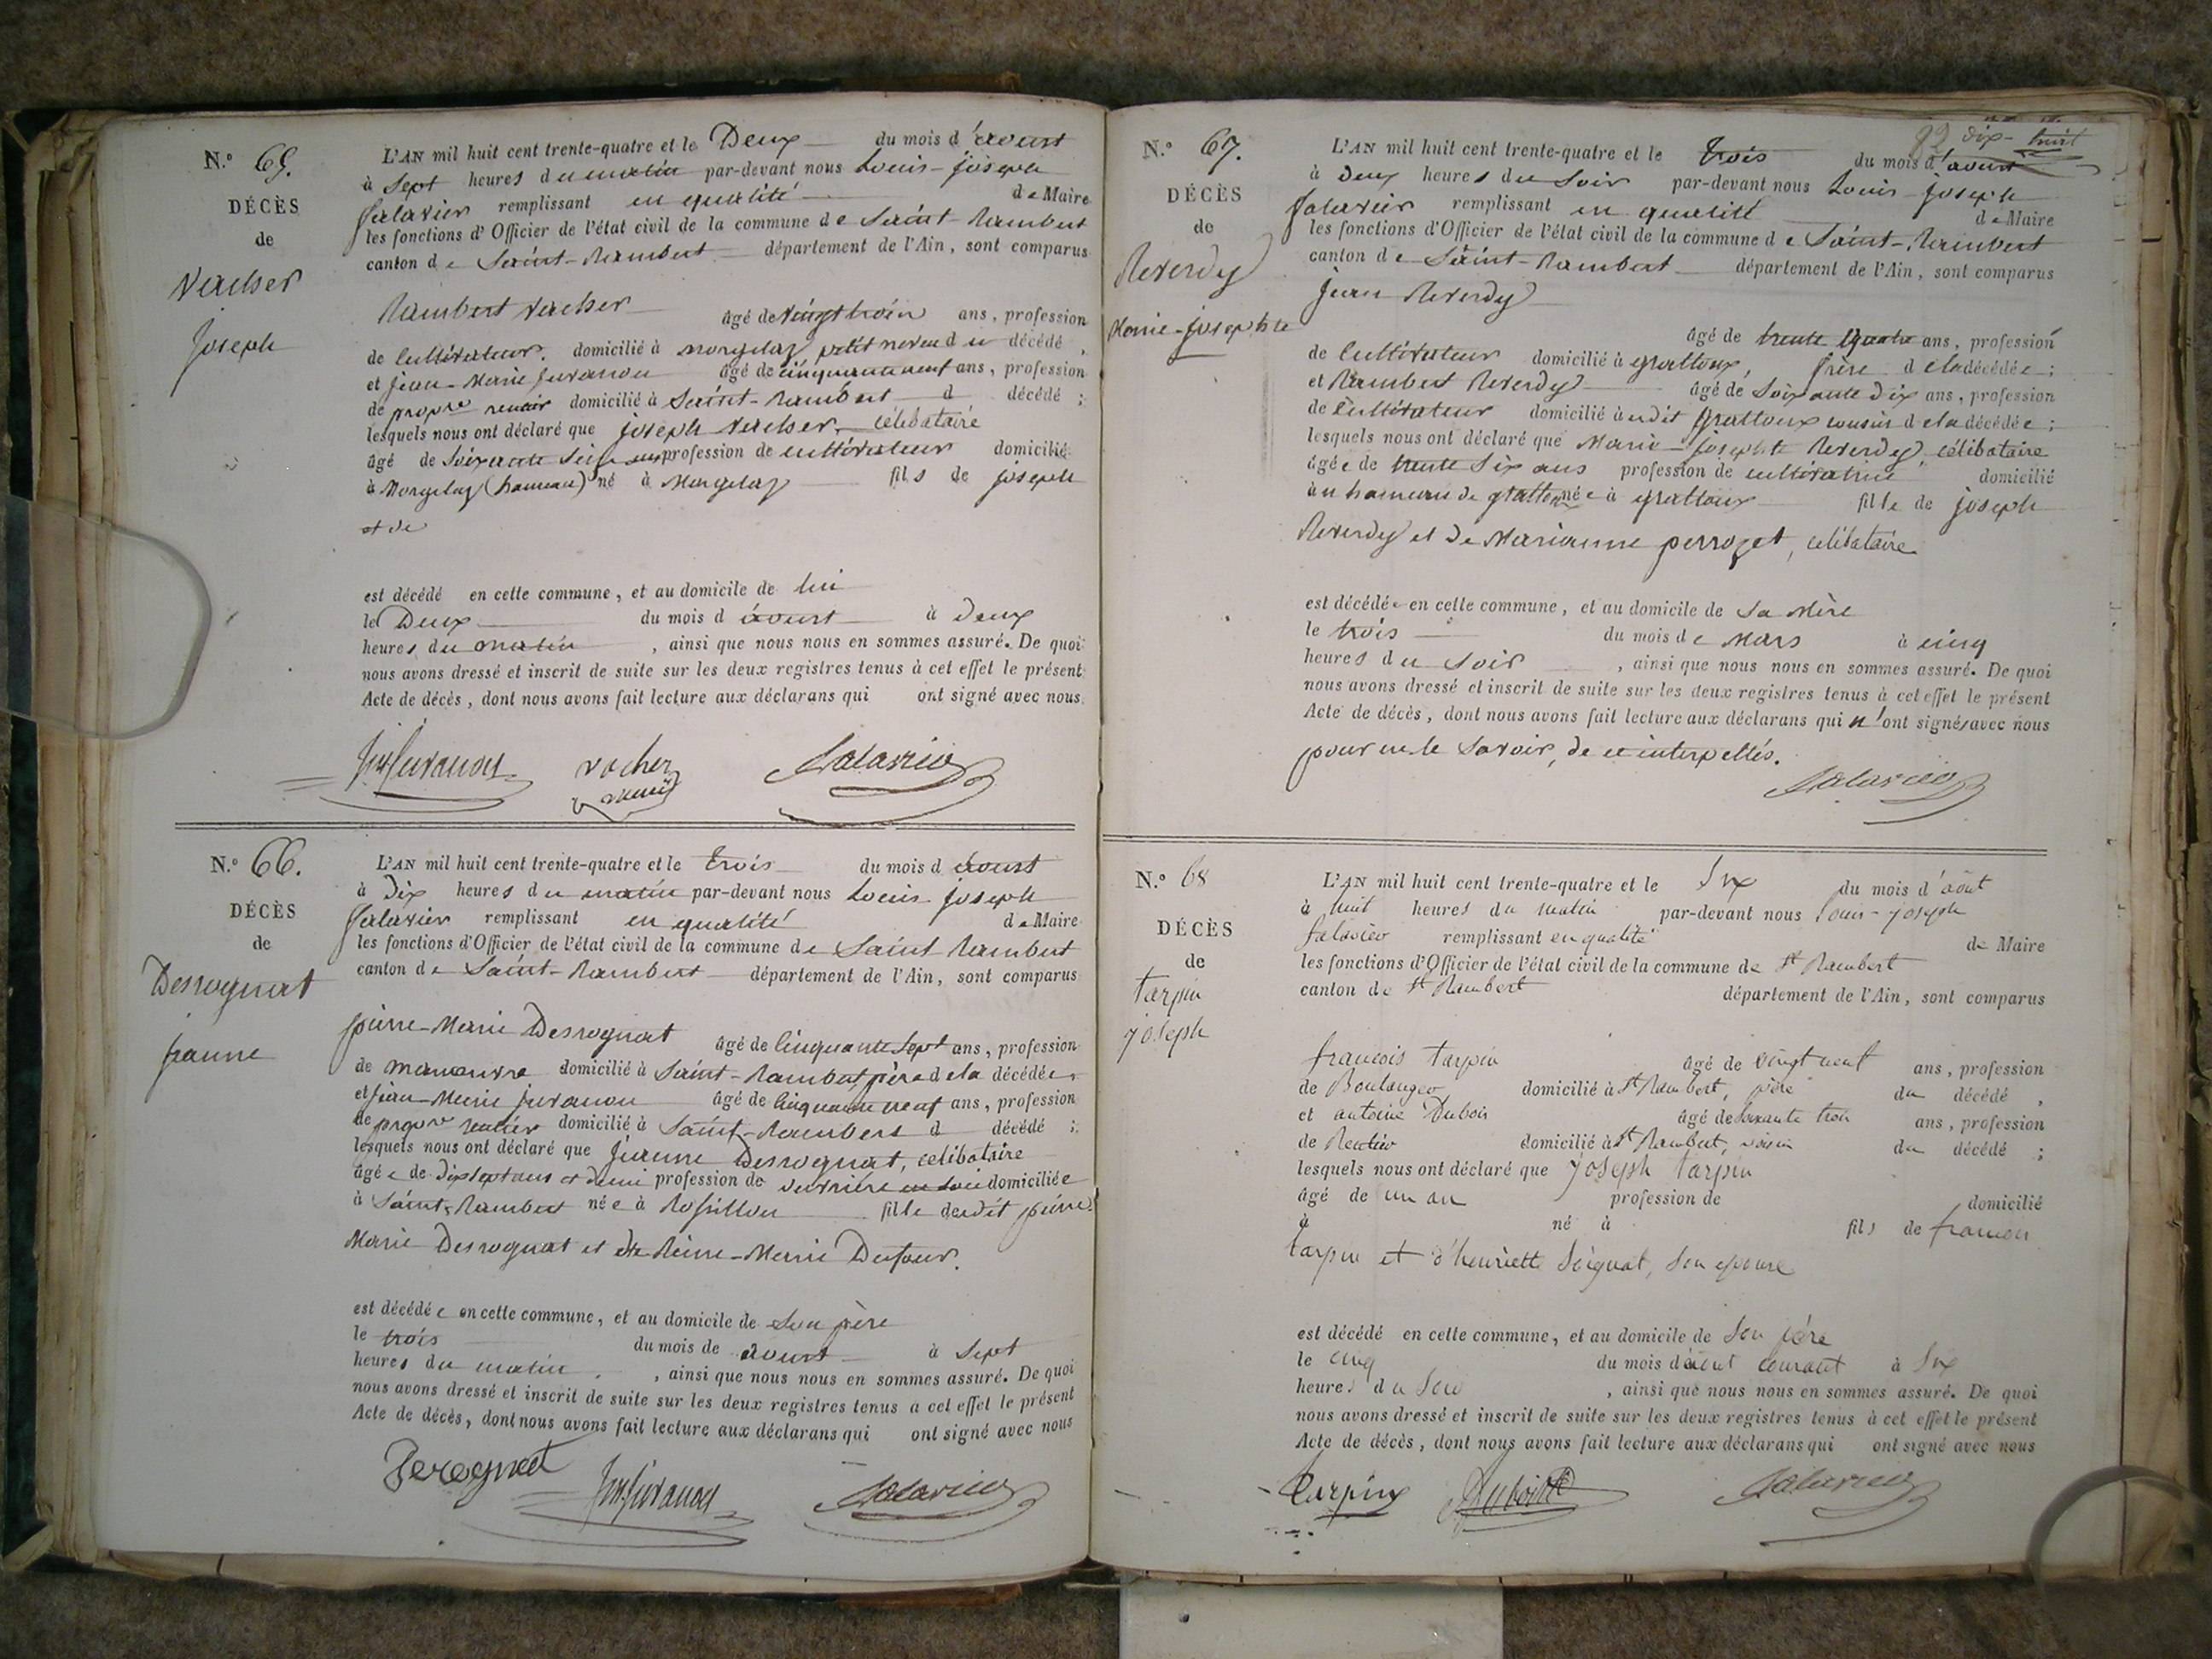 N.º 65.
DÉCÈS
de
Vacher
Joseph
L'AN mil huit cent trente-quatre et le Deux du mois d'aoust
à Sept heures du matin par-devant nous Louis-Joseph
Salavier remplissant en qualité de Maire
les fonctions d'Officier de l'état civil de la commune de Saint-Rambert
canton de Saint-Rambert département de l'Ain, sont comparus
Rambert Vacher
âgé de Vingt trois ans, profession
de Cultivateur. domicilié à Morgelaz petit neveu du décédé,
et jean-Marie Juvanon âgé de cinquante neuf ans, profession
de propre rentier domicilié à Saint-Rambert d décédé ;
lesquels nous ont déclaré que joseph Vacher, célibataire
âgé de Soixante Seize ans profession de cultivateur domicilié
à Morgelaz (hameau) né à Morgelaz fils de joseph
et de
est décédé en cette commune, et au domicile de lui
le Deux du mois d aoust à Deux
heures du matin, ainsi que nous nous en sommes assuré. De quoi
nous avons dressé et inscrit de suite sur les deux registres tenus à cet effet le présent
Acte de décès, dont nous avons fait lecture aux déclarans qui ont signé avec nous.
Juvanon vacher Salavier
N.º 66.
DÉCÈS
de
Desrognat
jeanne
L'AN mil huit cent trente-quatre et le trois du mois d aoust
à Dix heures du matin par-devant nous Louis Joseph
Salavier remplissant en qualité de Maire
les fonctions d'Officier de l'état civil de la commune de Saint Rambert
canton de Saint-Rambert département de l'Ain, sont comparus
pierre-Marie Desrognat âgé de Cinquante Sept ans, profession
de manœuvre domicilié à Saint-Rambert, père de la décédée,
et jean-Marie juvanon âgé de Cinquante neuf ans, profession
de propre rentier domicilié à Saint-Rambert d décédé ;
lesquels nous ont déclaré que Jeanne Desrognat, célibataire
âgée de dix sept ans et demi profession de ouvrière en soie domiciliée
à Saint-Rambert née à Rossillon fille dudit pierre
Marie Desrognat et de Reine-Marie Dufour.
est décédée en cette commune, et au domicile de Son père
le trois du mois de aoust à Sept
heures du matin, ainsi que nous nous en sommes assuré. De quoi
nous avons dressé et inscrit de suite sur les deux registres tenus à cet effet le présent
Acte de décès, dont nous avons fait lecture aux déclarans qui ont signé avec nous
Derognat Juvanon Salavier
82 dix-huit
N.º 67.
DÉCÈS
de
Reverdy
Marie-josephte
L'AN mil huit cent trente-quatre et le trois du mois d'aoust
à Deux heures du Soir par-devant nous Louis-joseph
Salavier remplissant en qualité de Maire
les fonctions d'Officier de l'état civil de la commune de Saint-Rambert
canton de Saint-Rambert département de l'Ain, sont comparus
jean Reverdy
âgé de trente quatre ans, profession
de Cultivateur domicilié à grattoux, frère de la décédée ;
et Rambert Reverdy âgé de Soixante Dix ans, profession
de Cultivateur domicilié audit grattoux cousin de la décédée ;
lesquels nous ont déclaré que Marie-josephte Reverdy, célibataire
âgée de trente Six ans profession de cultivatrice domicilié
au hameau de grattoux née à grattoux fille de joseph
Reverdy et de Marianne perrozet, célibataire
est décédée en cette commune, et au domicile de Sa Mère
le trois du mois de Mars à cinq
heures du Soir, ainsi que nous nous en sommes assuré. De quoi
nous avons dressé et inscrit de suite sur les deux registres tenus à cet effet le présent
Acte de décès, dont nous avons fait lecture aux déclarans qui n'ont signés avec nous
pour ne le Savoir, de ce interpellés.
Salavier
N.º 68
DÉCÈS
de
Tarpin
joseph
L'AN mil huit cent trente-quatre et le Six du mois d'août
à huit heures du matin par-devant nous Louis-joseph
Salavier remplissant en qualité de Maire
les fonctions d'Officier de l'état civil de la commune de St Rambert
canton de St Rambert département de l'Ain, sont comparus
françois tarpin âgé de vingt neuf ans, profession
de Boulanger domicilié à St Rambert, père du décédé,
et antoine Dubois âgé de Soixante trois ans, profession
de Rentier domicilié à St Rambert, voisin du décédé ;
lesquels nous ont déclaré que joseph tarpin
âgé de un an profession de domicilié
à né à fils de françois
tarpin et d'henriette Soignat, son epouse
est décédé en cette commune, et au domicile de Son père
le cinq du mois d'aout courant à Six
heures du Soir, ainsi que nous nous en sommes assuré. De quoi
nous avons dressé et inscrit de suite sur les deux registres tenus à cet effet le présent
Acte de décès, dont nous avons fait lecture aux déclarans qui ont signé avec nous
Tarpin Dubois Salavier